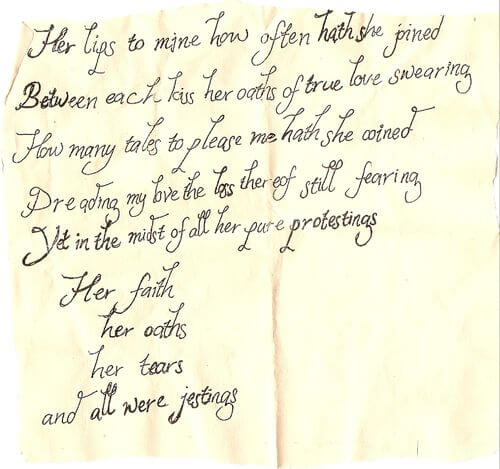 Her lips to mine how often hath she joined
Between each kiss her oaths of true love swearing
How many tales to please me hath she coined
Dreading my love the loss thereof still fearing
Yet in the midst of all her pure protestings
Her faith
her oaths
her tears
and all were jestings